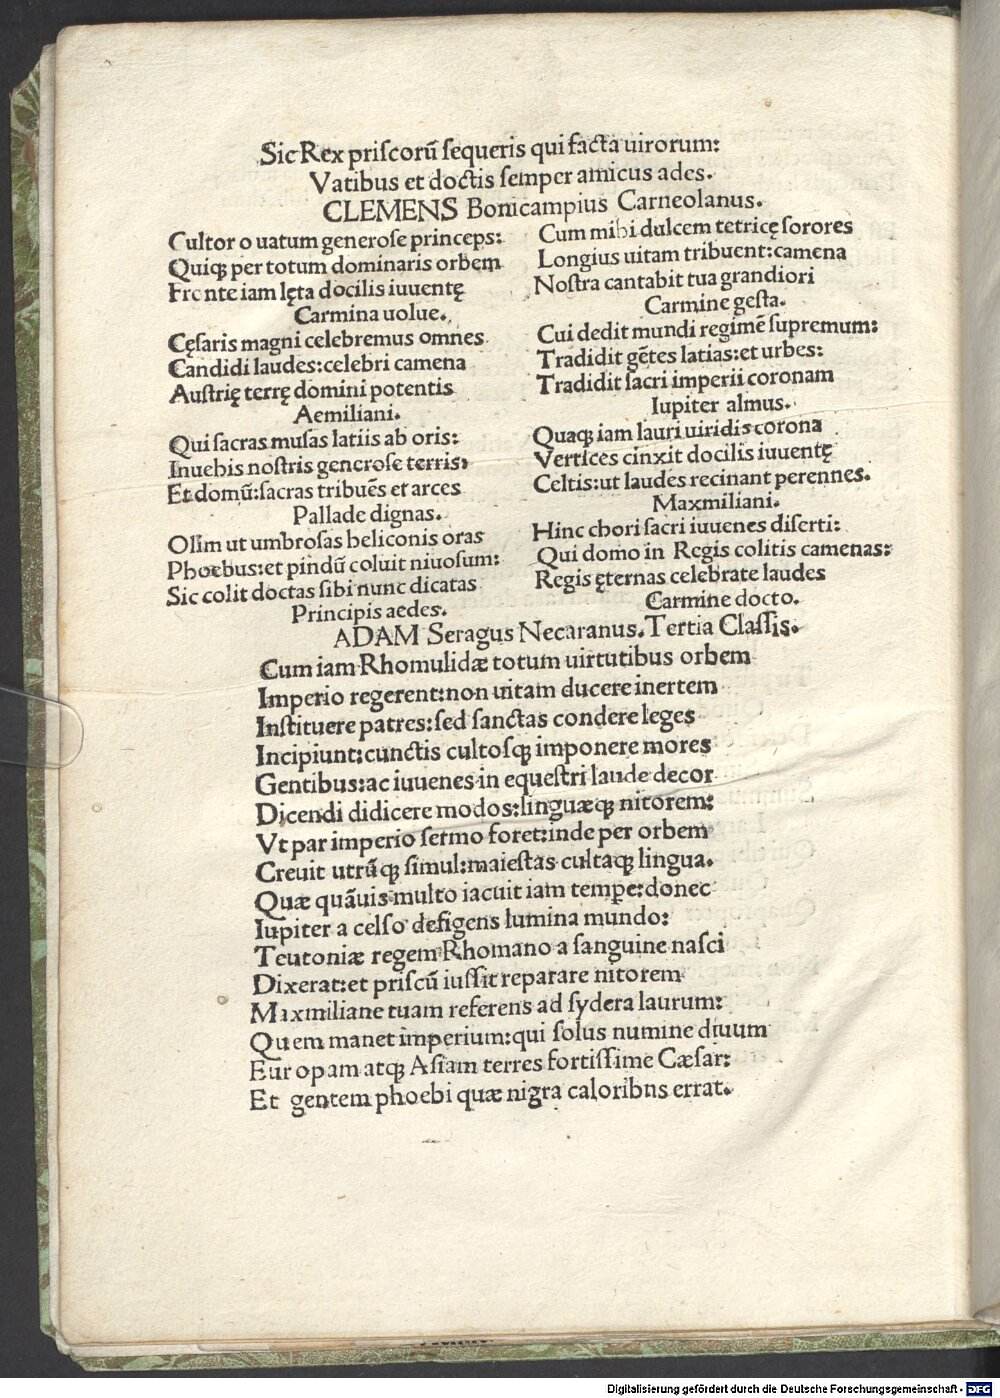 Sic Rex priscorū sequeris qui facta uirorum:
Vatibus et doctis semper amicus ades.
CLEMENS Bonicampius Carneolanus.
Cultor o uatum generose princeps:
Quiqꝫ per totum dominaris orbem
Fronte iam lęta docilis iuuentę
Carmina uolue.
Cęsaris magni celebremus omnes
Candidi laudes: celebri camena
Austrię terrę domini potentis
Aemiliani.
Qui sacras musas latiis ab oris:
Inuehis nostris generose terris:
Et domū: sacras tribuēs et arces
Pallade dignas.
Olim ut umbrosas heliconis oras
Phoebus: et pindū coluit niuosum:
Sic colit doctas sibi nunc dicatas
Principis aedes.
Cum mihi dulcem tetricę sorores
Longius uitam tribuent: camena
Nostra cantabit tua grandiori
Carmine gesta.
Cui dedit mundi regimē supremum:
Tradidit gētes latias: et urbes:
Tradidit sacri imperii coronam
Iupiter almus.
Quaqꝫ iam lauri uiridis corona
Vertices cinxit docilis iuuentę
Celtis: ut laudes recinant perennes.
Maxmiliani.
Hinc chori sacri iuuenes diserti:
Qui domo in Regis colitis camenas:
Regis ęternas celebrate laudes
Carmine docto.
ADAM Seragus Necaranus. Tertia Classis.
Cum iam Rhomulidæ totum uirtutibus orbem
Imperio regerent: non uitam ducere inertem
Instituere patres: sed sanctas condere leges
Incipiunt: cunctis cultosqꝫ imponere mores
Gentibus: ac iuuenes in equestri laude decor
Dicendi didicere modos: linguæqꝫ nitorem:
Vt par imperio sermo foret: inde per orbem
Creuit utrūqꝫ simul: maiestas cultaqꝫ lingua.
Quæ quāuis multo iacuit iam tempe: donec
Iupiter a celso defigens lumina mundo:
Teutoniæ regem Rhomano a sanguine nasci
Dixerat: et priscū iussit reparare nitorem
Maxmiliane tuam referens ad sydera laurum:
Quem manet imperium: qui solus numine diuum
Europam atqꝫ Asiam terres fortissime Cæsar:
Et gentem phoebi quæ nigra caloribns errat.
Digitalisierung gefördert durch die Deutsche Forschungsgemeinschaft - DFG